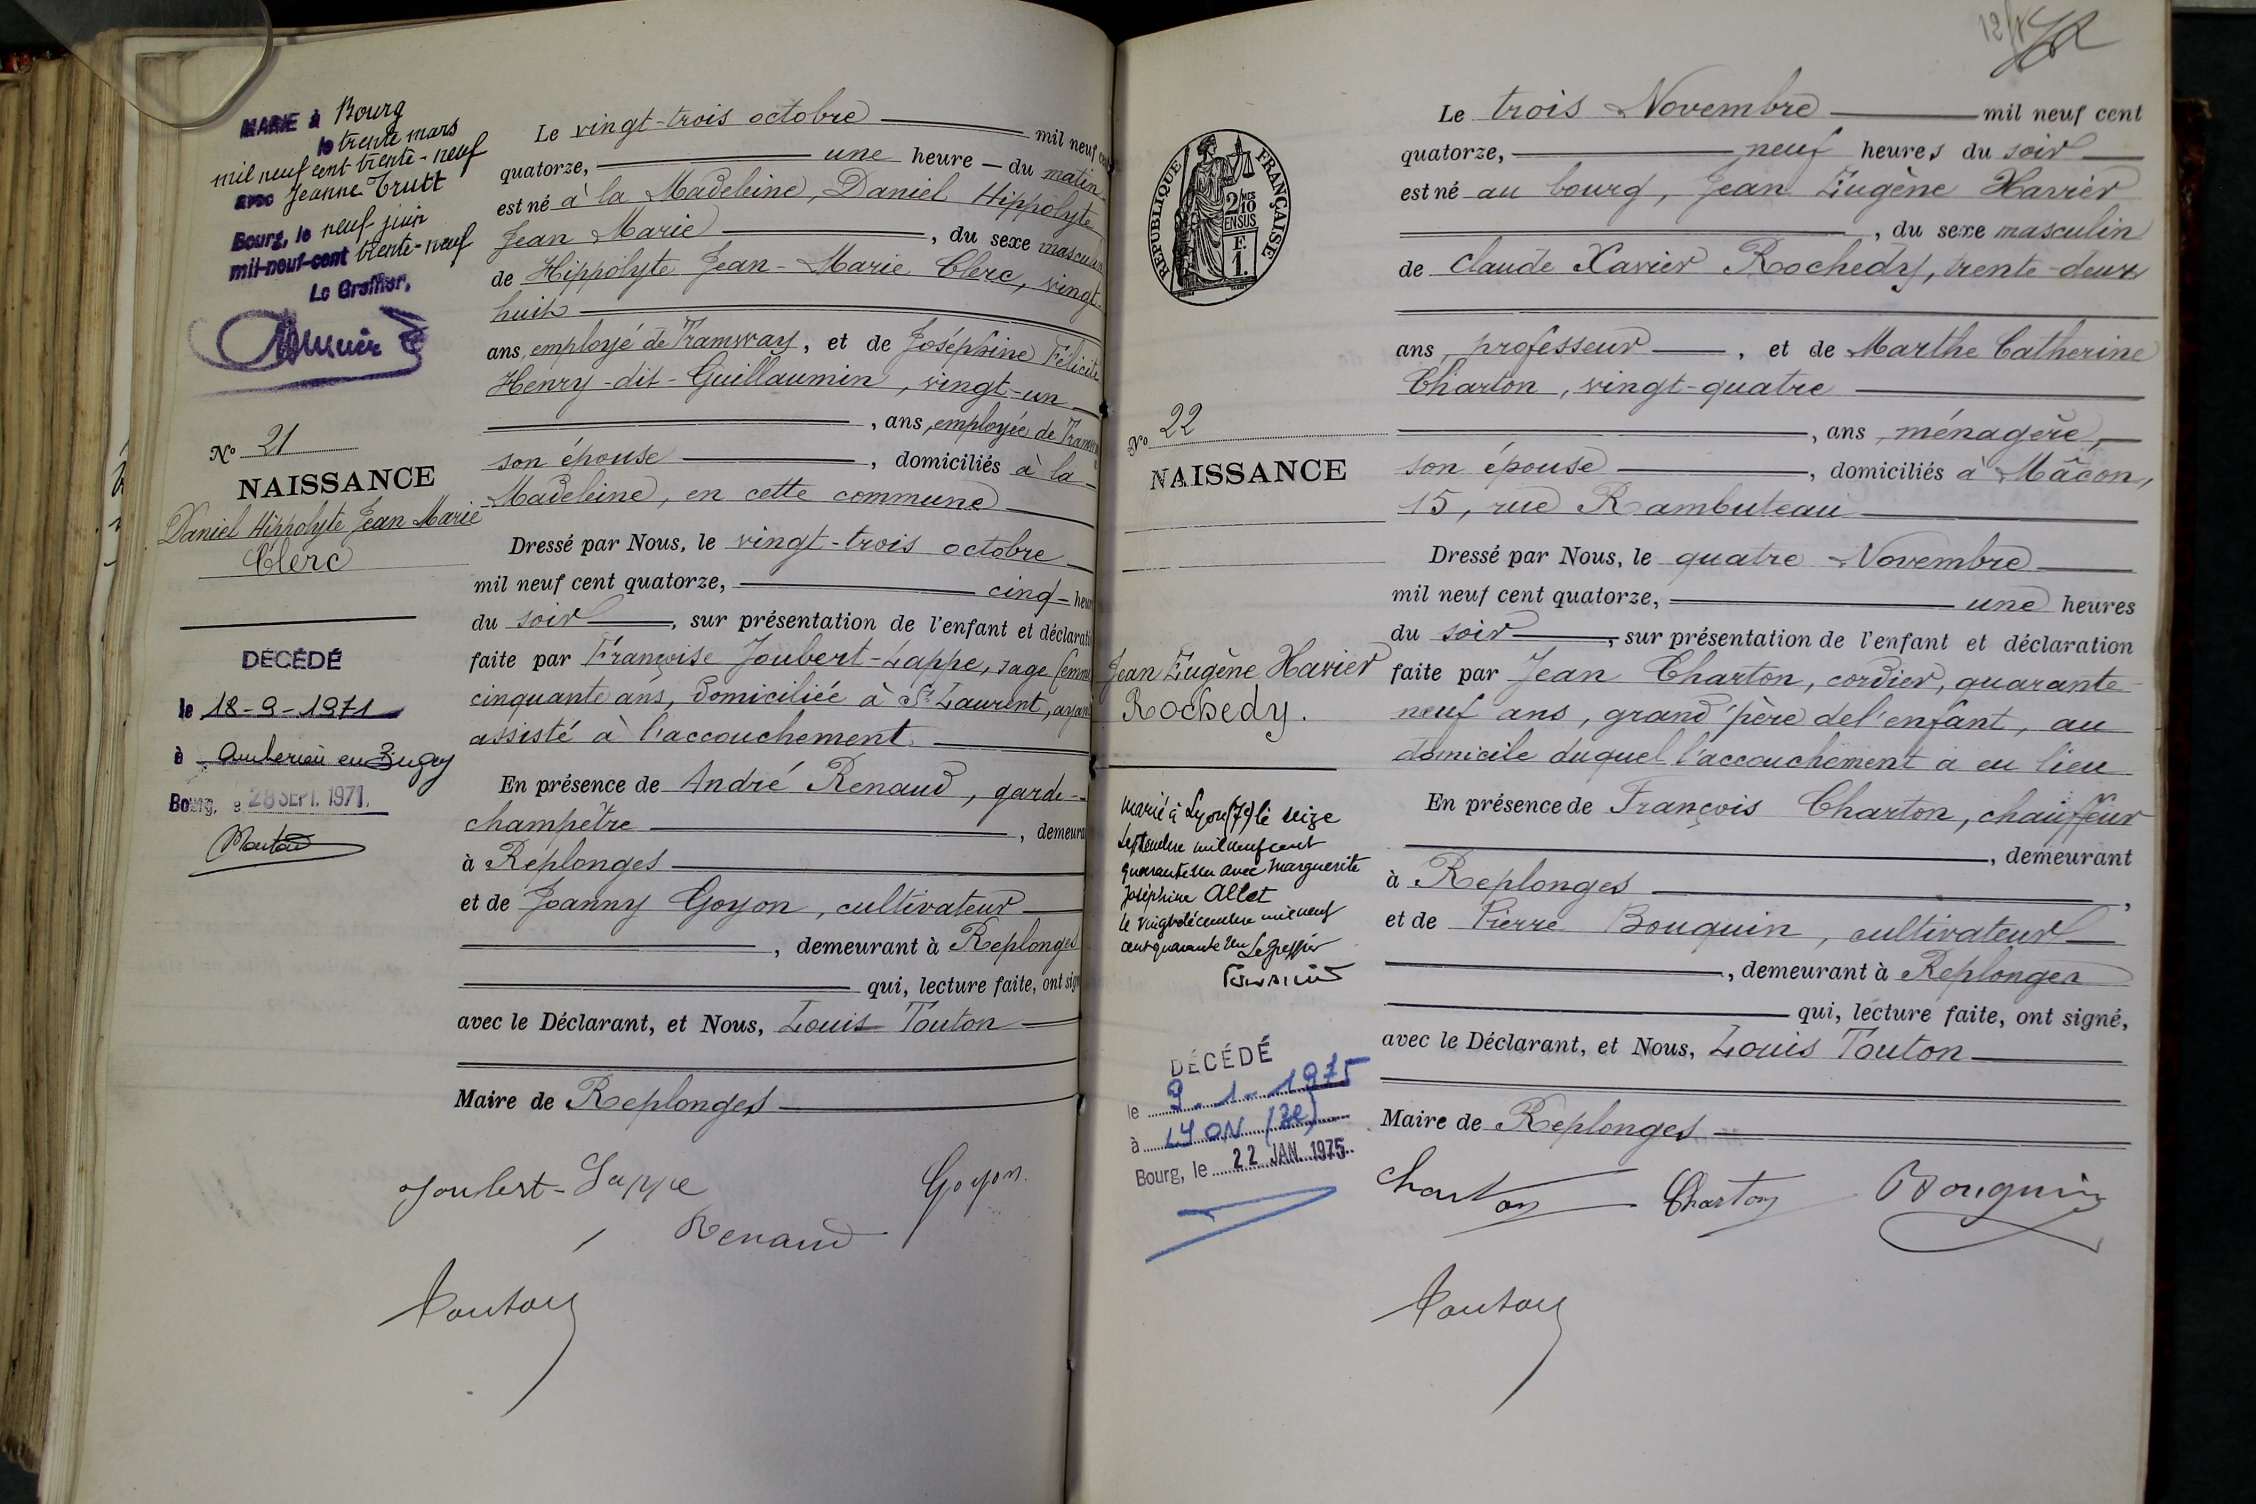 MARIÉ à Bourg
le trente mars
mil neuf cent trente-neuf
avec Jeanne Trutt
Bourg, le neuf juin
mil-neuf-cent trente-neuf
Le Greffier,
N° 21
NAISSANCE
Daniel Hippolyte Jean Marie
Clerc
DÉCÉDÉ
le 18-9-1971
à Ambérieu en Bugey
Bourg, le 28 SEPT. 1971.
Le vingt-trois octobre mil neuf cent
quatorze, une heure du matin
est né à la Madeleine, Daniel Hippolyte
Jean Marie, du sexe masculin
de Hippolyte Jean-Marie Clerc, vingt-
huit
ans, employé de Tramway, et de Joséphine Félicité
Henry-dit-Guillaumin, vingt-un
, ans, employée de Tramway
son épouse, domiciliés à la
Madeleine, en cette commune
Dressé par Nous, le vingt-trois octobre
mil neuf cent quatorze, cinq heures
du soir, sur présentation de l'enfant et déclaration
faite par Françoise Joubert-Lappe, sage femme
cinquante ans, domiciliée à St Laurent, ayant
assisté à l'accouchement.
En présence de André Renaud, garde-
champêtre, demeurant
à Replonges
et de Joanny Goyon, cultivateur
, demeurant à Replonges
qui, lecture faite, ont signé
avec le Déclarant, et Nous, Louis Touton
Maire de Replonges
Joubert-Lappe Goyon.
Renaud
Touton
12/12
RÉPUBLIQUE FRANÇAISE
2/10
EN SUS
F.
1.
N° 22
NAISSANCE
Jean Eugène Xavier
Rochedy.
Marié à Lyon (7e) le seize
Septembre mil neuf cent
quarante un avec Marguerite
Joséphine Allet
le vingt décembre mil neuf
cent quarante un Le Greffier
DÉCÉDÉ
le 9.1.1975
à LYON (3e)
Bourg, le 22 JAN. 1975
Le trois Novembre mil neuf cent
quatorze, neuf heures du soir
est né au bourg, Jean Eugène Xavier
, du sexe masculin
de Claude Xavier Rochedy, trente-deux
ans, professeur, et de Marthe Catherine
Charton, vingt-quatre
, ans, ménagère,
son épouse, domiciliés à Mâcon,
15, rue Rambuteau
Dressé par Nous, le quatre Novembre
mil neuf cent quatorze, une heures
du soir, sur présentation de l'enfant et déclaration
faite par Jean Charton, cordier, quarante-
neuf ans, grand'père de l'enfant, au
domicile duquel l'accouchement a eu lieu
En présence de François Charton, chauffeur
, demeurant
à Replonges,
et de Pierre Bouquin, cultivateur
, demeurant à Replonges
qui, lecture faite, ont signé,
avec le Déclarant, et Nous, Louis Touton
Maire de Replonges
Charton Charton Bouquin
Touton